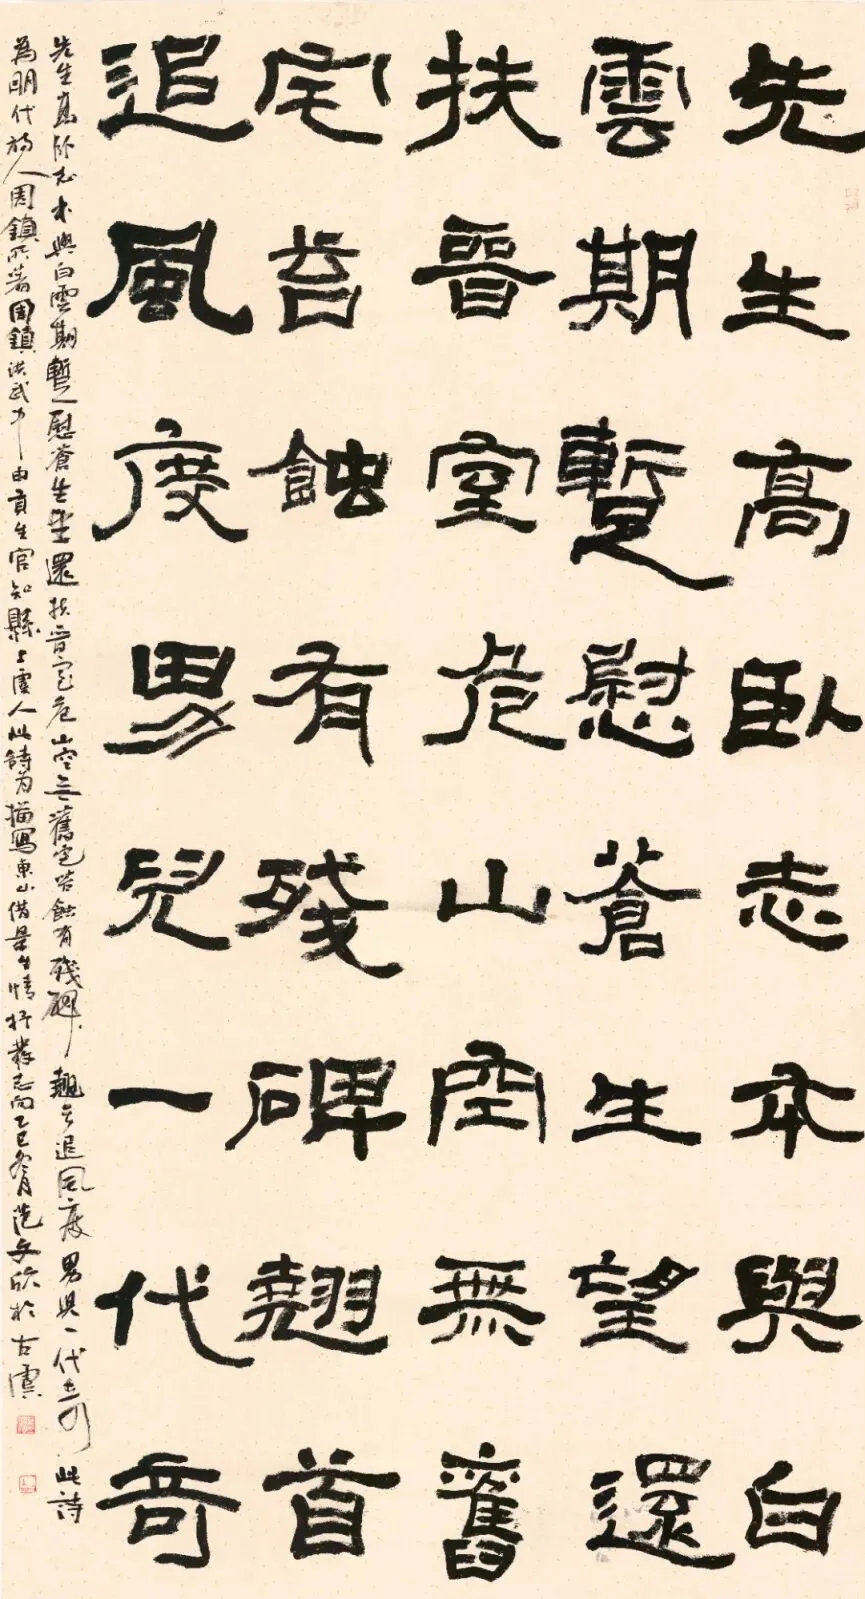 先生高臥志本與白
雲期暫慰蒼生望還
扶晉室危山空無舊
宅苔蝕有殘碑翹首
追風度男兒一代奇
先生高臥志本與白雲期暫慰蒼生望還扶晉室危山空無舊宅苔蝕有殘碑翹首追風度男兒一代奇此詩
為明代詩人周鎮所著周鎮洪武中由貢生官知縣上虞人此詩为描寫東山借景生情抒發志向乙巳冬月范文欣於古虞